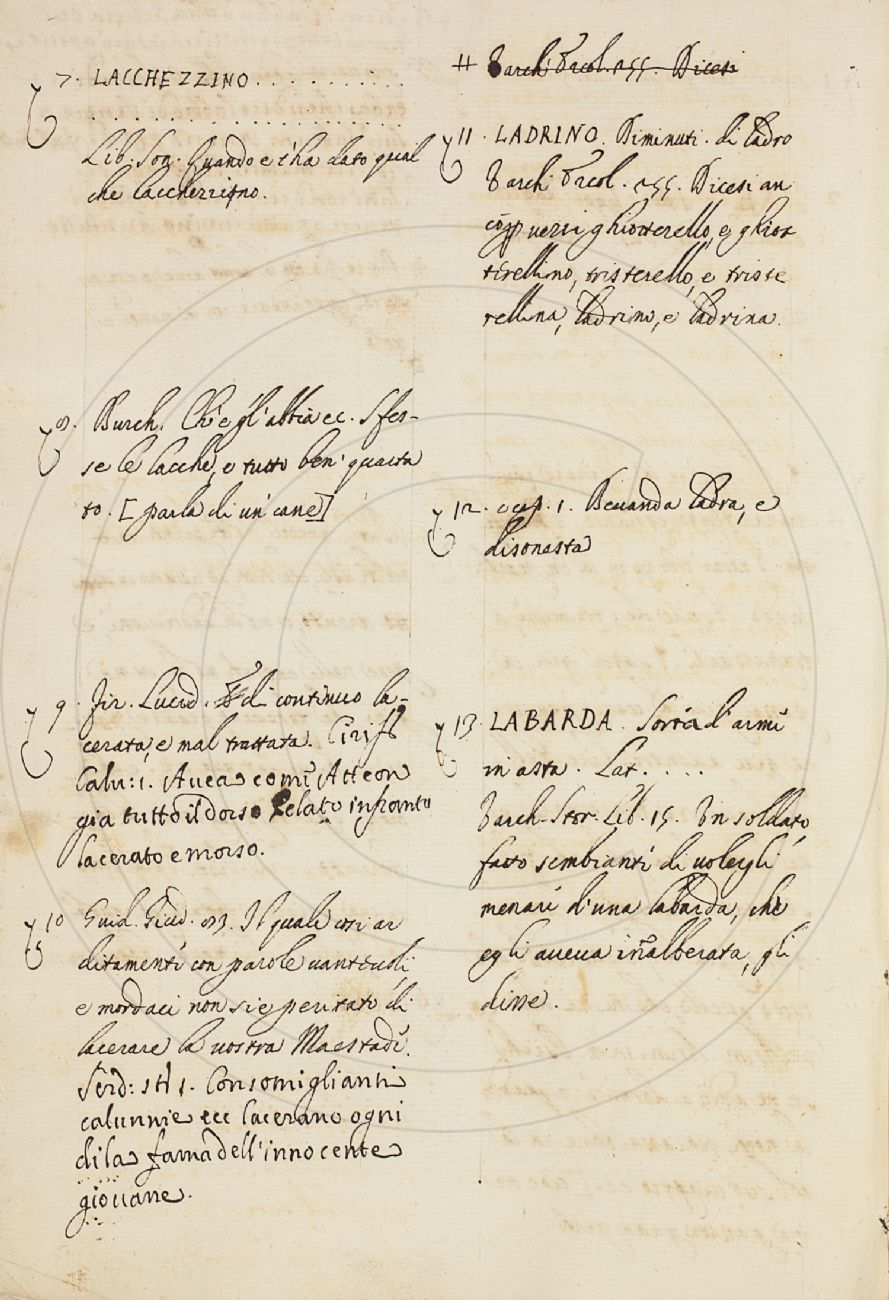 7. LACCHEZZINO . . . . . . . . . .
. . . . . . . . . . . . . . . . . . . .
Lib. Son. Quando e' t'ha dato qual
che lacchezzino.
8. Burch. Ch'egl'abbia ec. Sfes-
se le lacche, e tutto ben' quarta
to. [parla di un' cane]
9. Fir. Lucid. di continuo la-
cerata, e mal trattata. Ciriff.
Calu: 1. Avea come Atteon
gia tutto il dorso Pelato infranto
lacerato e morso.
10 Guid. Giud. Il quale così ar
ditamente con parole vantevoli,
e mordaci non si è peritato di
lacerare la vostra Maestade.
Serd: st 1. Con somiglianti
calunnie ecc lacerano ogni
dì la fama dell'innocente
giovane.
# Varch. Ercol. 255. Dicesi
11. LADRINO. Diminut. di Ladro
Varch. Ercol. 255. Dicesi an
cora ghiotterello, e ghiot
terellino, tristerello, e triste
rellina, Ladrino, e Ladrina.
12. cap. 1. Bevanda Ladra, e
disonesta
13. LABARDA. Sorta d'arme
in asta. Lat. . . . .
Varch. Stor. Lib. 15. Un soldato,
fatto sembiante di volergli
menare d'una labarda, che
egli aveva inalberata, gli
disse.